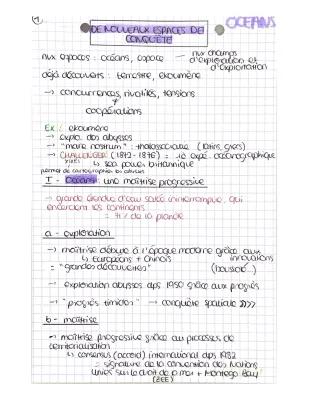 1
OCEANS
DE NOUVEAUX ESPACES DE
CONQUÊTE
nvx espaces : océans, espace → nvx champs
d'exploration et
d'exploitation
déjà découverts : terrestre, écoumène
→ concurrences, rivalités, tensions
+
coopérations
Ex : écoumène
→ explo. des abysses
→ "mare nostrum" : thalassocratie (latins, grecs)
→ CHALLENGER (1872 - 1876) = 1e expé. océanographique
↳ sea power britannique
permet de cartographier les abysses
I - Océans : une maîtrise progressive
→ grande étendue d'eau salée ininterrompue, qui
encerclent les continents
= 71% de la planète
a - exploration
→ maîtrise débute à l'époque moderne grâce aux
↳ Européens + Chinois innovations
= "grandes découvertes" (boussole...)
→ exploration abysses dps 1950 grâce aux progrès
→ "progrès timides" → conquête spatiale >>>
b - maîtrise
→ maîtrise progressive grâce au processus de
territorialisation
↳ consensus (accord) international dps 1982
= signature de la convention des Nations
Unies sur le droit de la mer à Montego Bay
(ZEE)